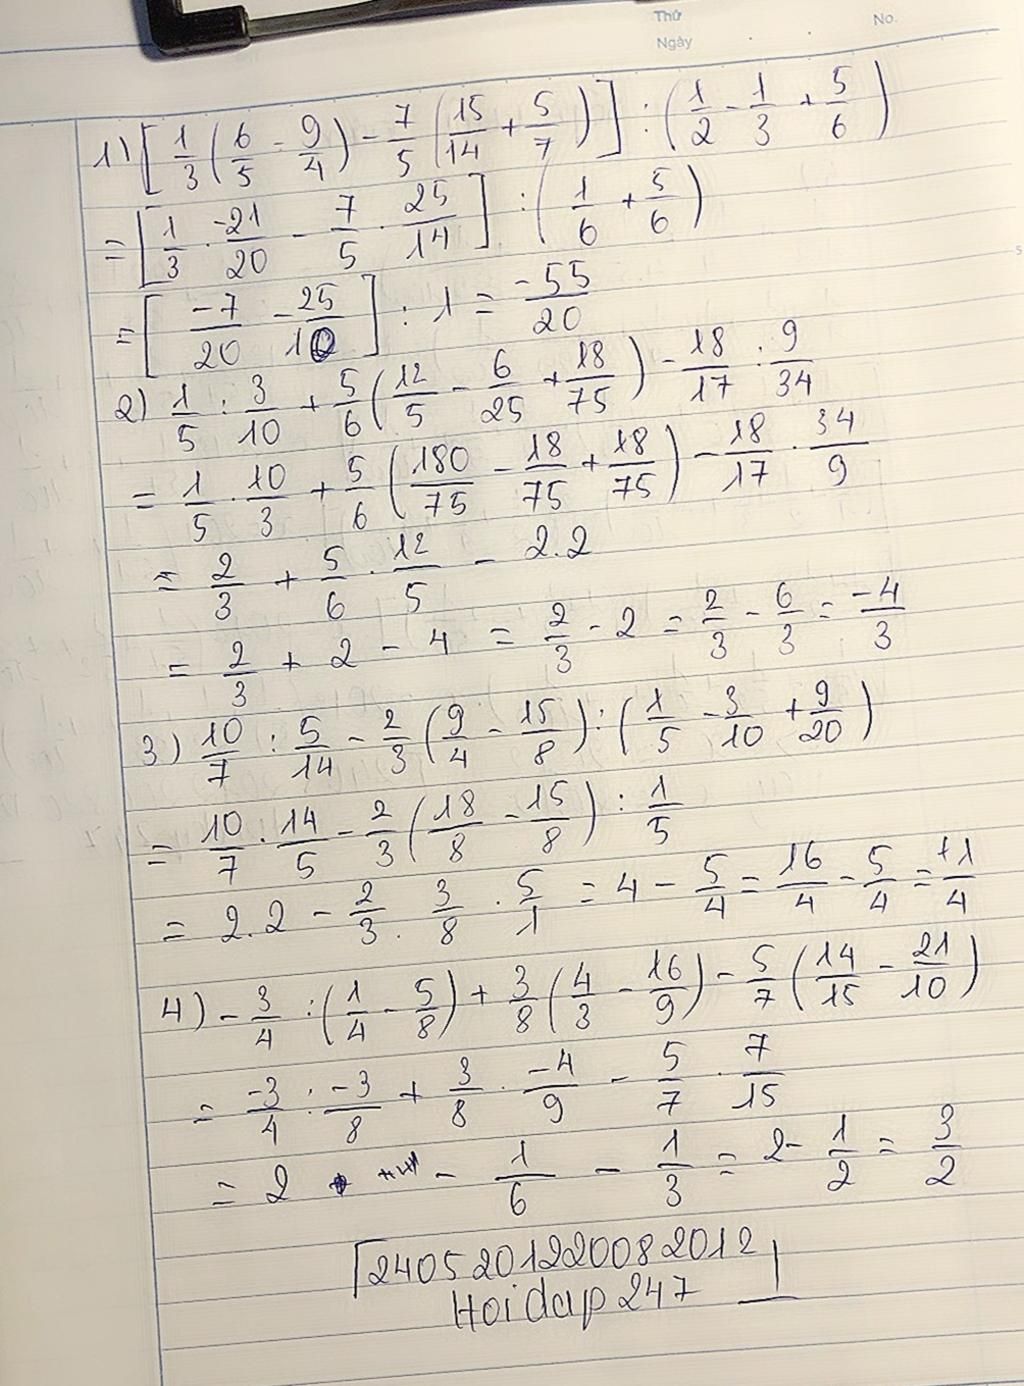 Thứ No.
Ngày
1) [1/3 (6/5 - 9/4) - 7/5 (15/14 + 5/7)] : (1/2 - 1/3 + 5/6)
= [1/3 . -21/20 - 7/5 . 25/14] : (1/6 + 5/6)
= [-7/20 - 25/10] : 1 = -55/20
2) 1/5 : 3/10 + 5/6 (12/5 - 6/25 + 18/75) - 18/17 : 9/34
= 1/5 . 10/3 + 5/6 (180/75 - 18/75 + 18/75) - 18/17 . 34/9
= 2/3 + 5/6 . 12/5 - 2.2
= 2/3 + 2 - 4 = 2/3 - 2 = 2/3 - 6/3 = -4/3
3) 10/7 : 5/14 - 2/3 (9/4 - 15/8) : (1/5 - 3/10 + 9/20)
= 10/7 . 14/5 - 2/3 (18/8 - 15/8) : 1/5
= 2.2 - 2/3 . 3/8 . 5/1 = 4 - 5/4 = 16/4 - 5/4 = 11/4
4) - 3/4 : (1/4 - 5/8) + 3/8 (4/3 - 16/9) - 5/7 (14/15 - 21/10)
= -3/4 : -3/8 + 3/8 . -4/9 - 5/7 . 7/15
= 2 - 1/6 - 1/3 = 2 - 1/2 = 3/2
2405201220082012
Hoidap247